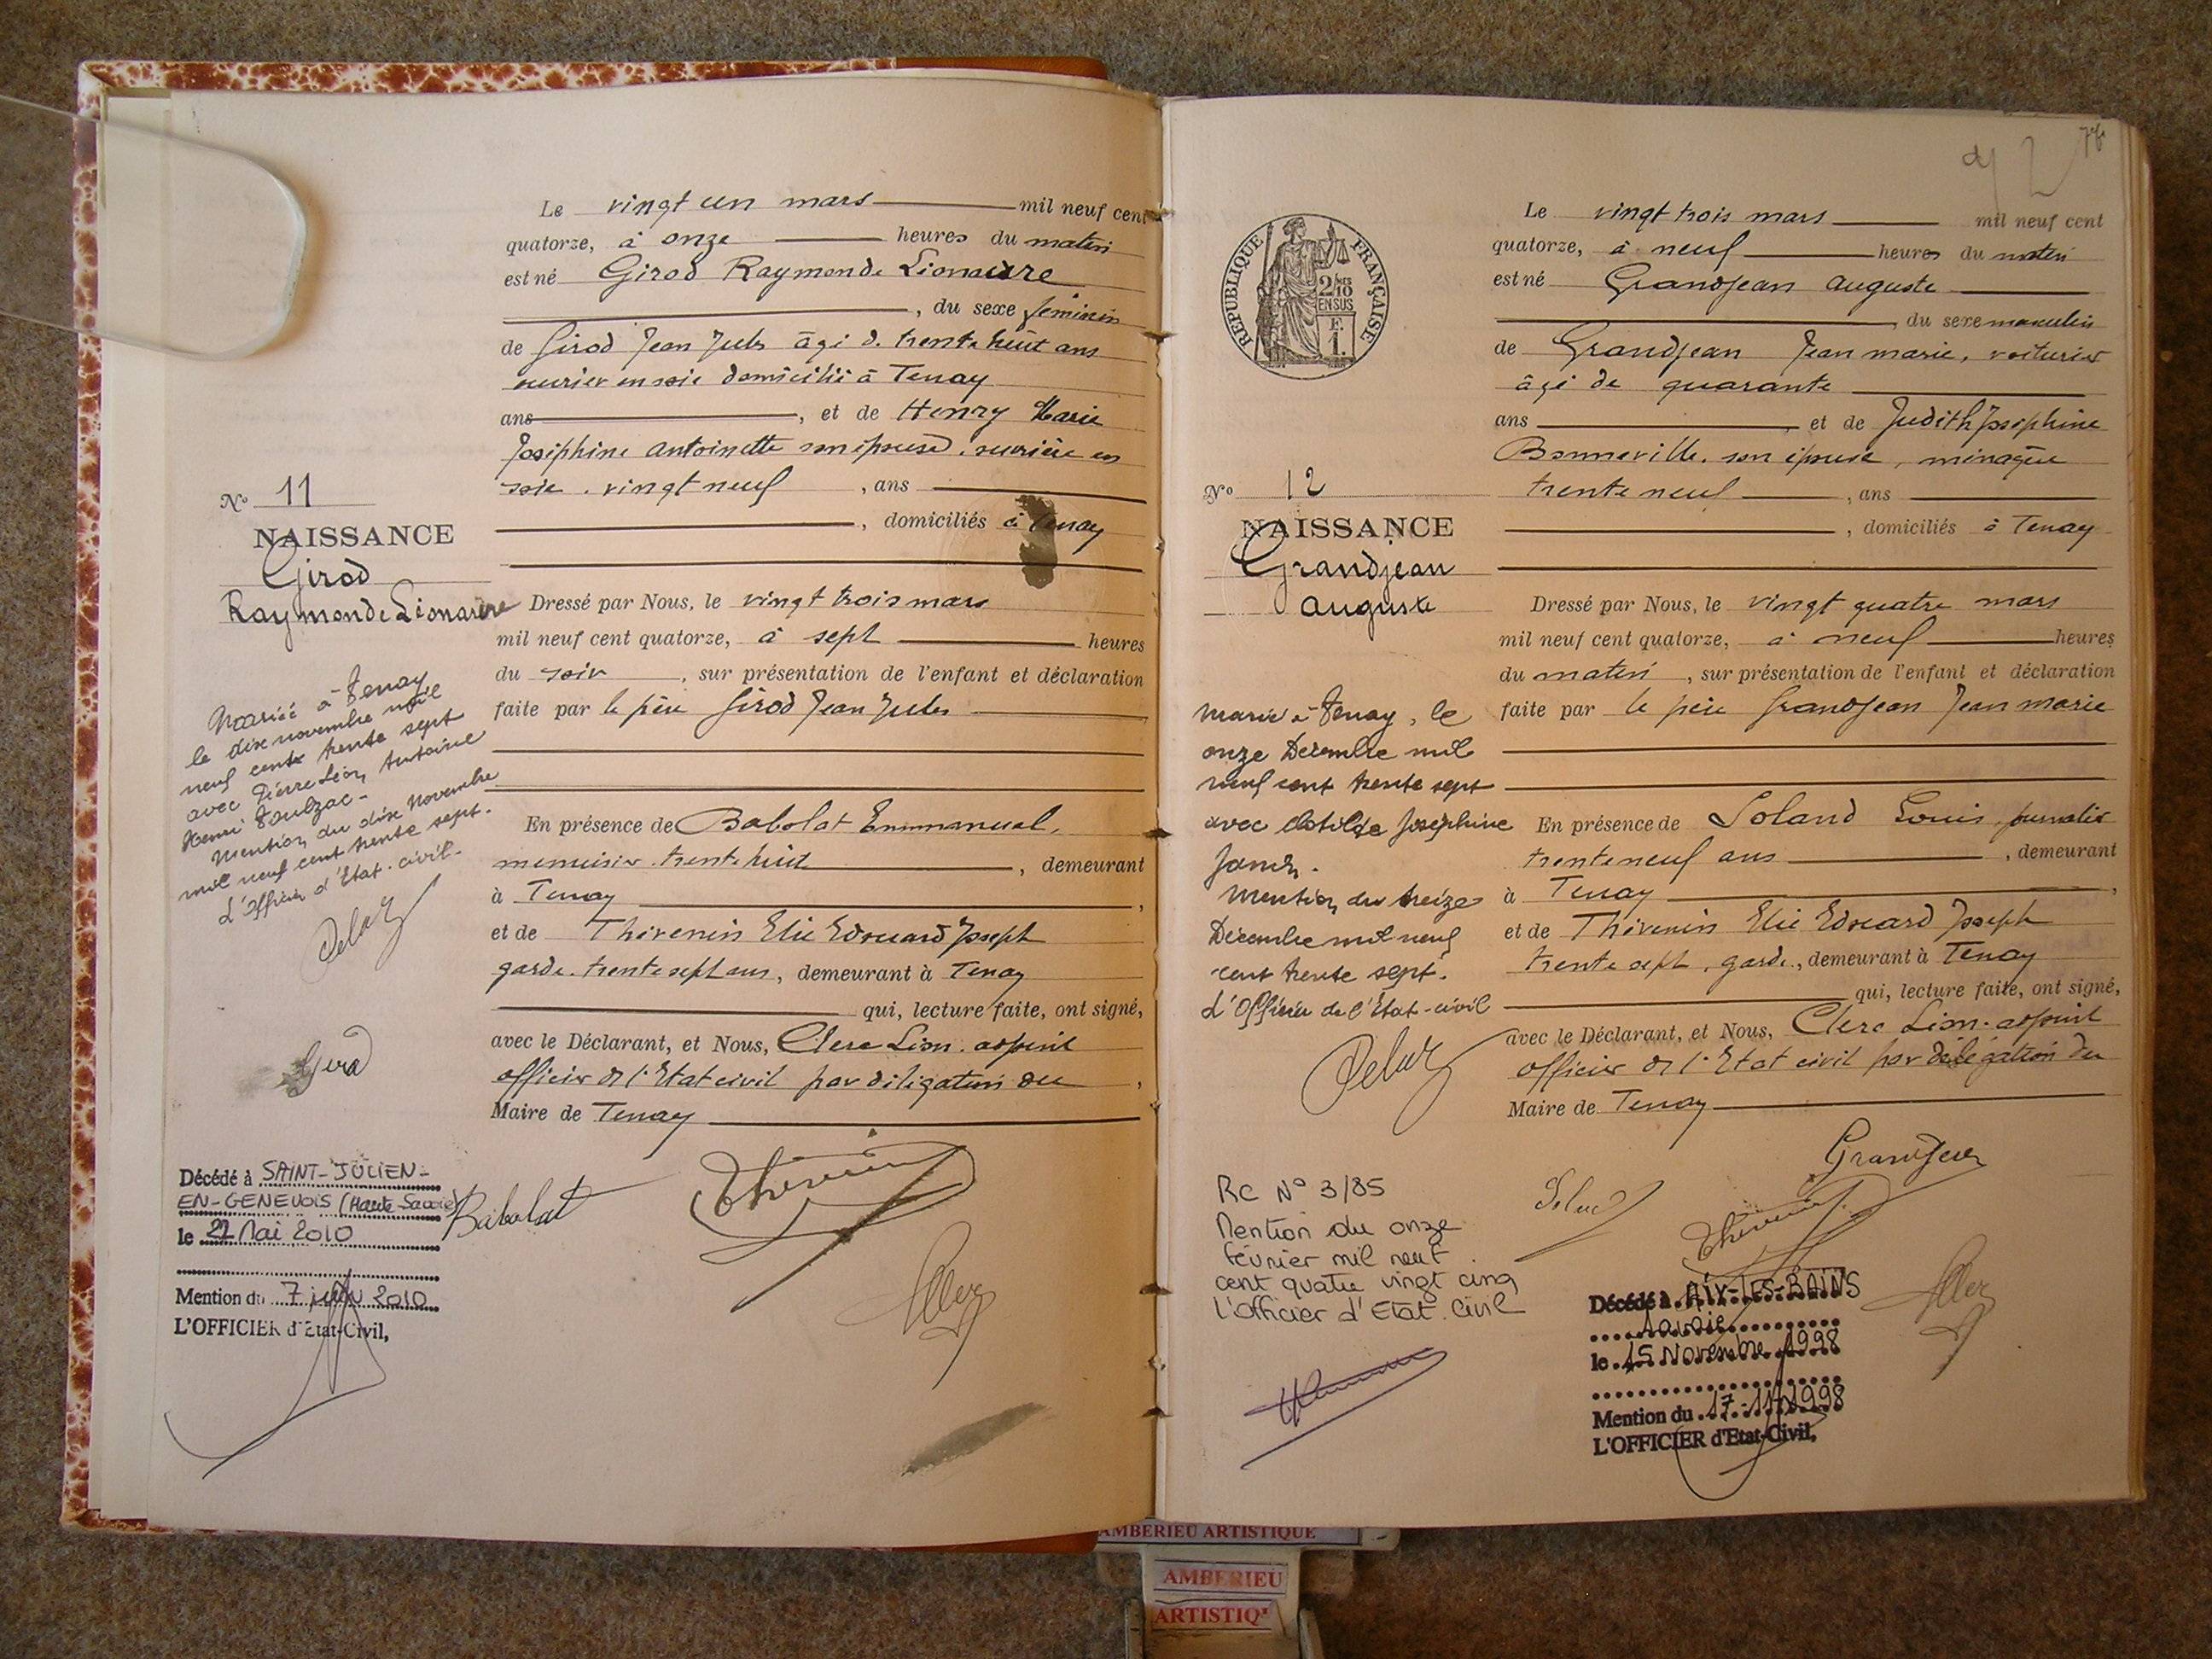 Le vingt un mars mil neuf cent
quatorze, à onze heures du matin
est né Girod Raymonde
, du sexe féminin
de Girod Jean Jules âgé de trente huit ans
ouvrier en soie domicilié à Tenay
ans , et de Henry Marie
Joséphine Antoinette son épouse, ouvrière en
soie, vingt neuf , ans
, domiciliés à Tenay
Nº 11
NAISSANCE
Girod
Raymonde
Dressé par Nous, le vingt trois mars
mil neuf cent quatorze, à sept heures
du soir , sur présentation de l'enfant et déclaration
faite par le père Girod Jean Jules
Mariée à Tenay
le dix novembre mil
neuf cent trente sept
avec Pierre Léon Antoine
Henri
Mention du dix Novembre
mil neuf cent trente sept.
L'Officier d'Etat-civil.
En présence de Babolat Emmanuel,
menuisier, trente huit , demeurant
à Tenay ,
et de Thévenin Elie Edouard Joseph
garde, trente sept ans, demeurant à Tenay
qui, lecture faite, ont signé,
avec le Déclarant, et Nous, Clerc Léon, adjoint
officier de l'Etat civil par délégation du ,
Maire de Tenay
Girod
Babolat
Thévenin
Décédé à SAINT-JULIEN-
EN-GENEVOIS (Haute-Savoie)
le Mai 2010
Mention du 7 juin 2010
L'OFFICIER d'Etat-Civil,
76
RÉPUBLIQUE FRANÇAISE
2/10
EN SUS
Le vingt trois mars mil neuf cent
quatorze, à neuf heures du matin
est né Grandjean Auguste
, du sexe masculin
de Grandjean Jean marie, voiturier
âgé de quarante
ans et de Judith Joséphine
Bonneville, son épouse, ménagère
trente neuf , ans
, domiciliés à Tenay
Nº 12
NAISSANCE
Grandjean
Auguste
Dressé par Nous, le vingt quatre mars
mil neuf cent quatorze, à neuf heures
du matin , sur présentation de l'enfant et déclaration
faite par le père Grandjean Jean marie
Marié à Tenay, le
onze Décembre mil
neuf cent trente sept
avec Clotilde Joséphine
Mention du treize
Décembre mil neuf
cent trente sept.
L'Officier de l'Etat-civil
En présence de Soland Louis, journalier
trente neuf ans , demeurant
à Tenay ,
et de Thévenin Elie Edouard Joseph
trente sept, garde, demeurant à Tenay
qui, lecture faite, ont signé,
avec le Déclarant, et Nous, Clerc Léon, adjoint
officier de l'Etat civil par délégation du
Maire de Tenay
Grandjean
Thévenin
RC Nº 3/85
Mention du onze
février mil neuf
cent quatre vingt cinq
L'Officier d'Etat. Civil
Décédé à AIX-LES-BAINS
Savoie
le 15 Novembre 1998
Mention du 17-11-1998
L'OFFICIER d'Etat-Civil,
AMBERIEU ARTISTIQUE
AMBERIEU
ARTISTIQ